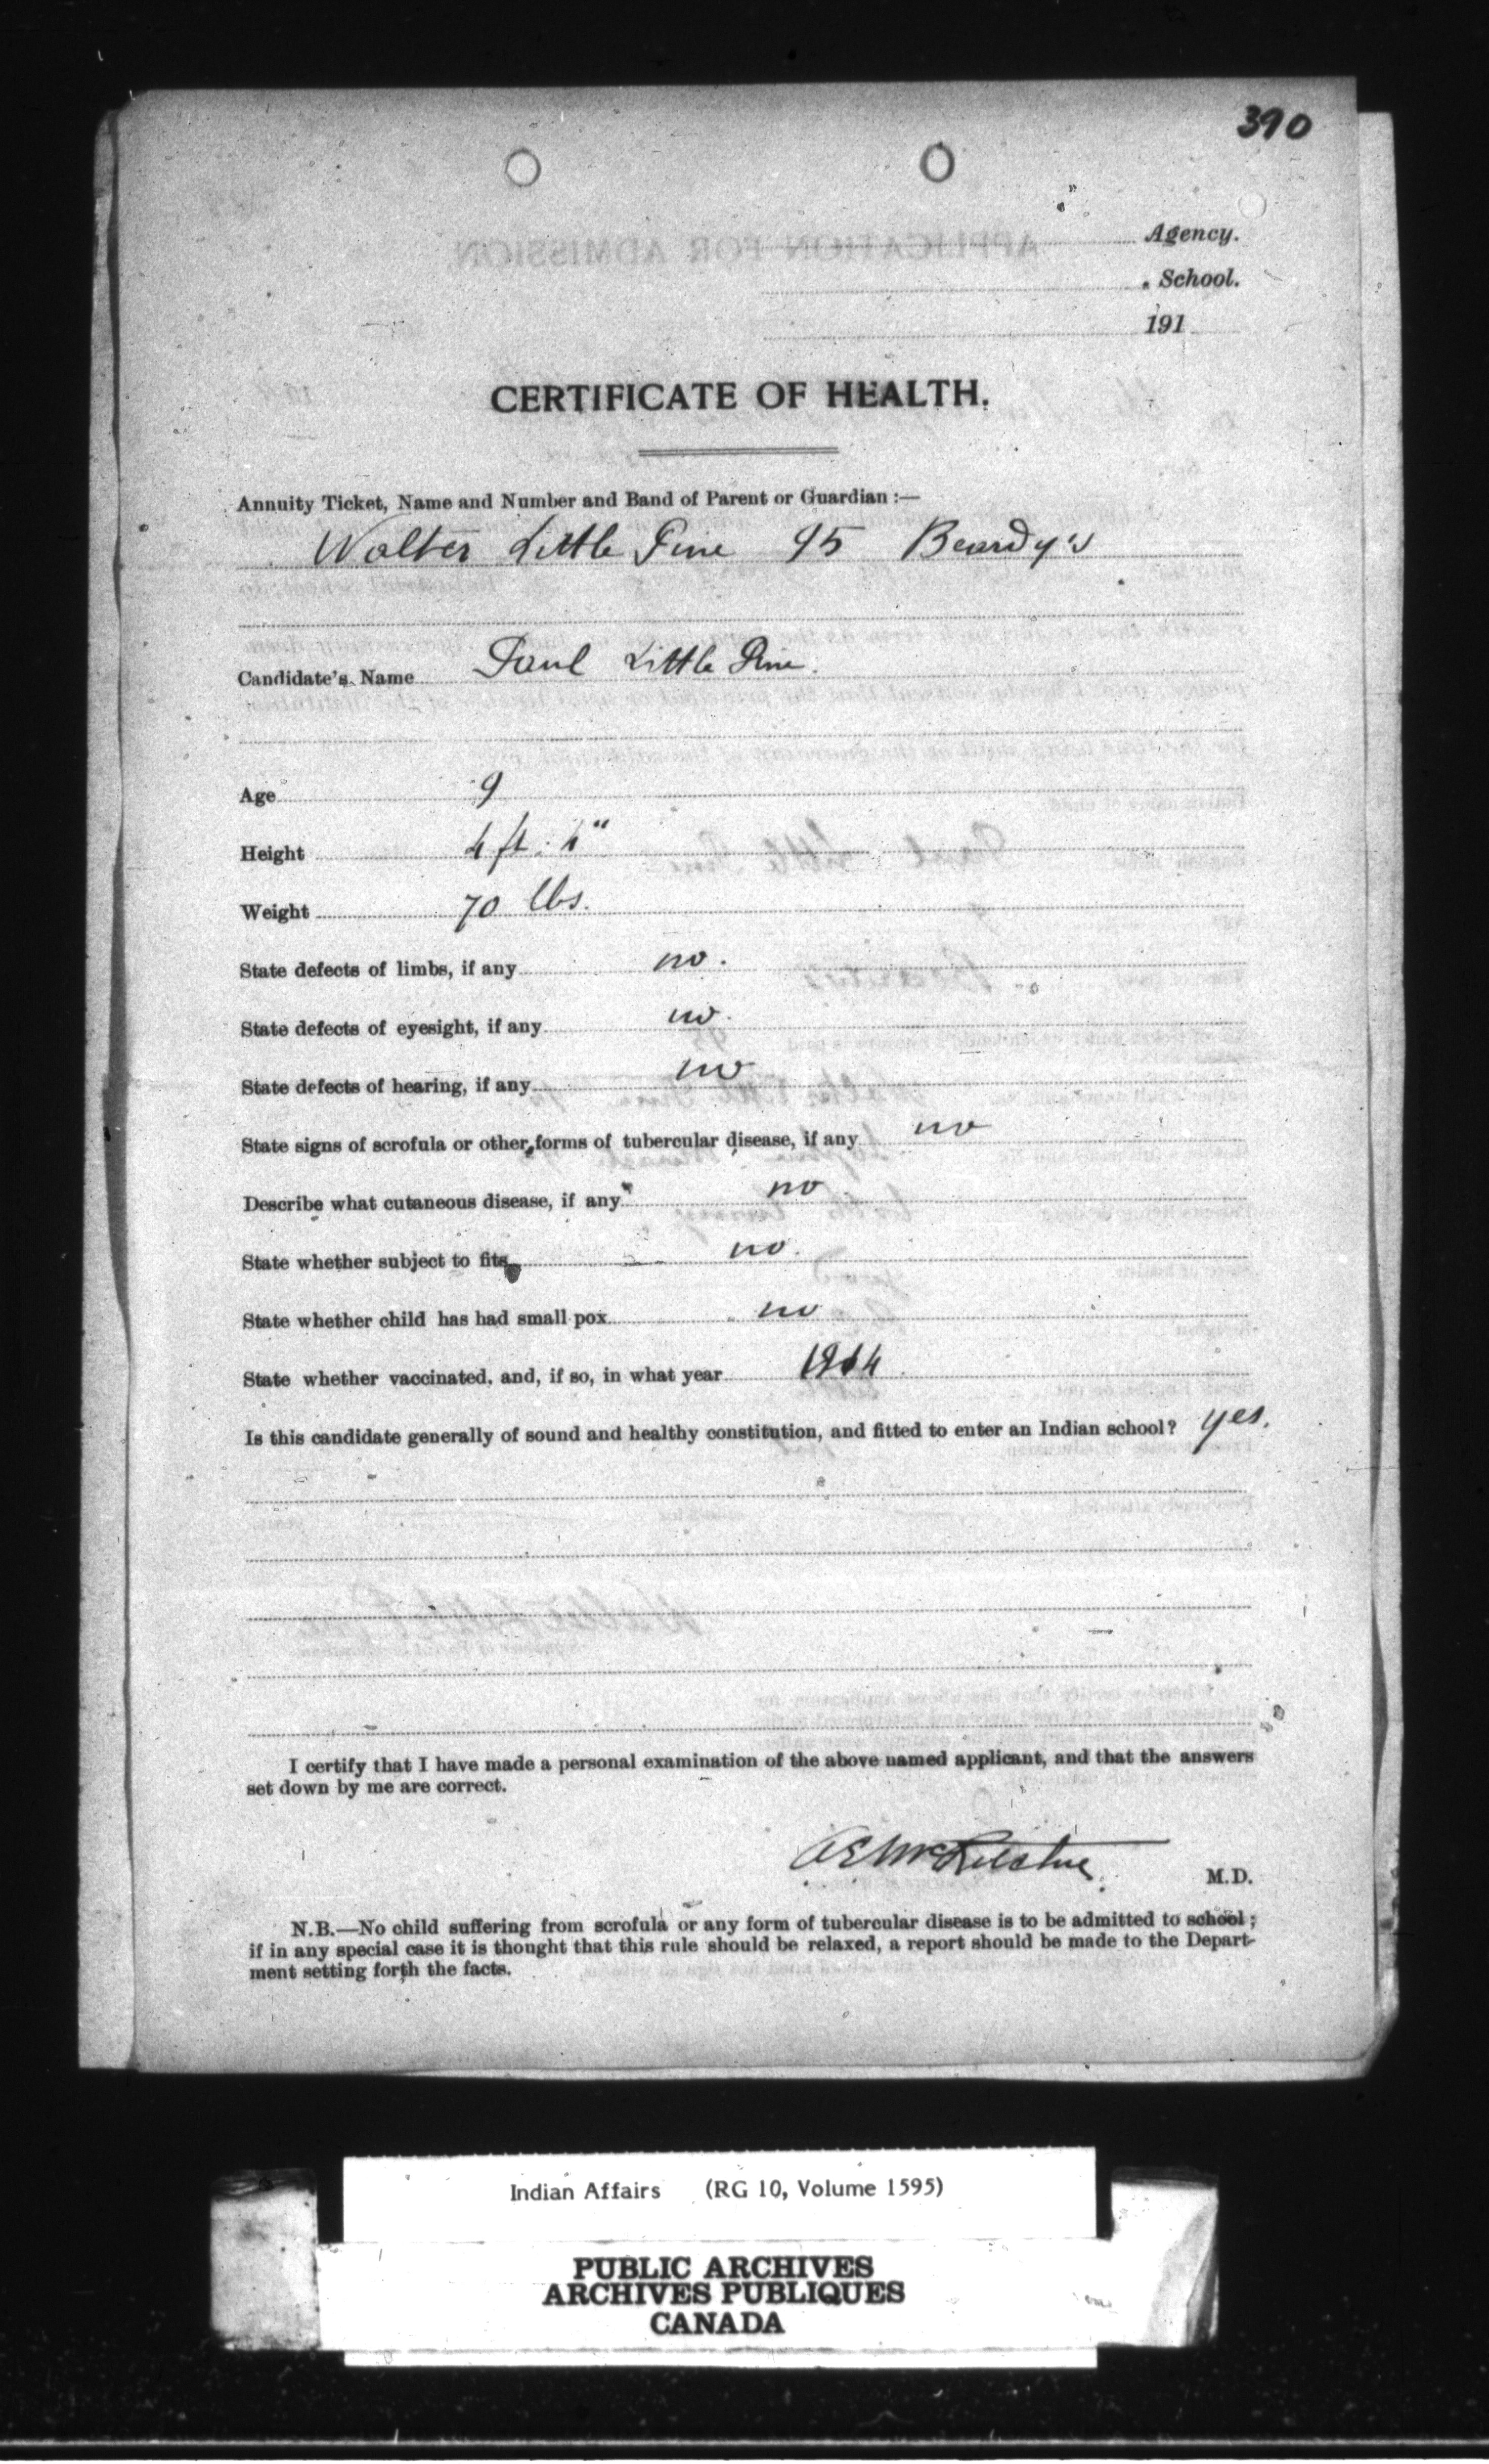 390
Agency.
School.
191
CERTIFICATE OF HEALTH.
Annuity Ticket, Name and Number and Band of Parent or Guardian :—
Walter Little Pine 95 Beardy's
Candidate's Name Paul Little Pine.
Age 9
Height 4 ft. 4"
Weight 70 lbs.
State defects of limbs, if any no.
State defects of eyesight, if any no.
State defects of hearing, if any no
State signs of scrofula or other forms of tubercular disease, if any no
Describe what cutaneous disease, if any no
State whether subject to fits no.
State whether child has had small pox no
State whether vaccinated, and, if so, in what year 1914
Is this candidate generally of sound and healthy constitution, and fitted to enter an Indian school? yes.
I certify that I have made a personal examination of the above named applicant, and that the answers
set down by me are correct.
M.D.
N.B.—No child suffering from scrofula or any form of tubercular disease is to be admitted to school ;
if in any special case it is thought that this rule should be relaxed, a report should be made to the Depart-
ment setting forth the facts.
Indian Affairs (RG 10, Volume 1595)
PUBLIC ARCHIVES
ARCHIVES PUBLIQUES
CANADA